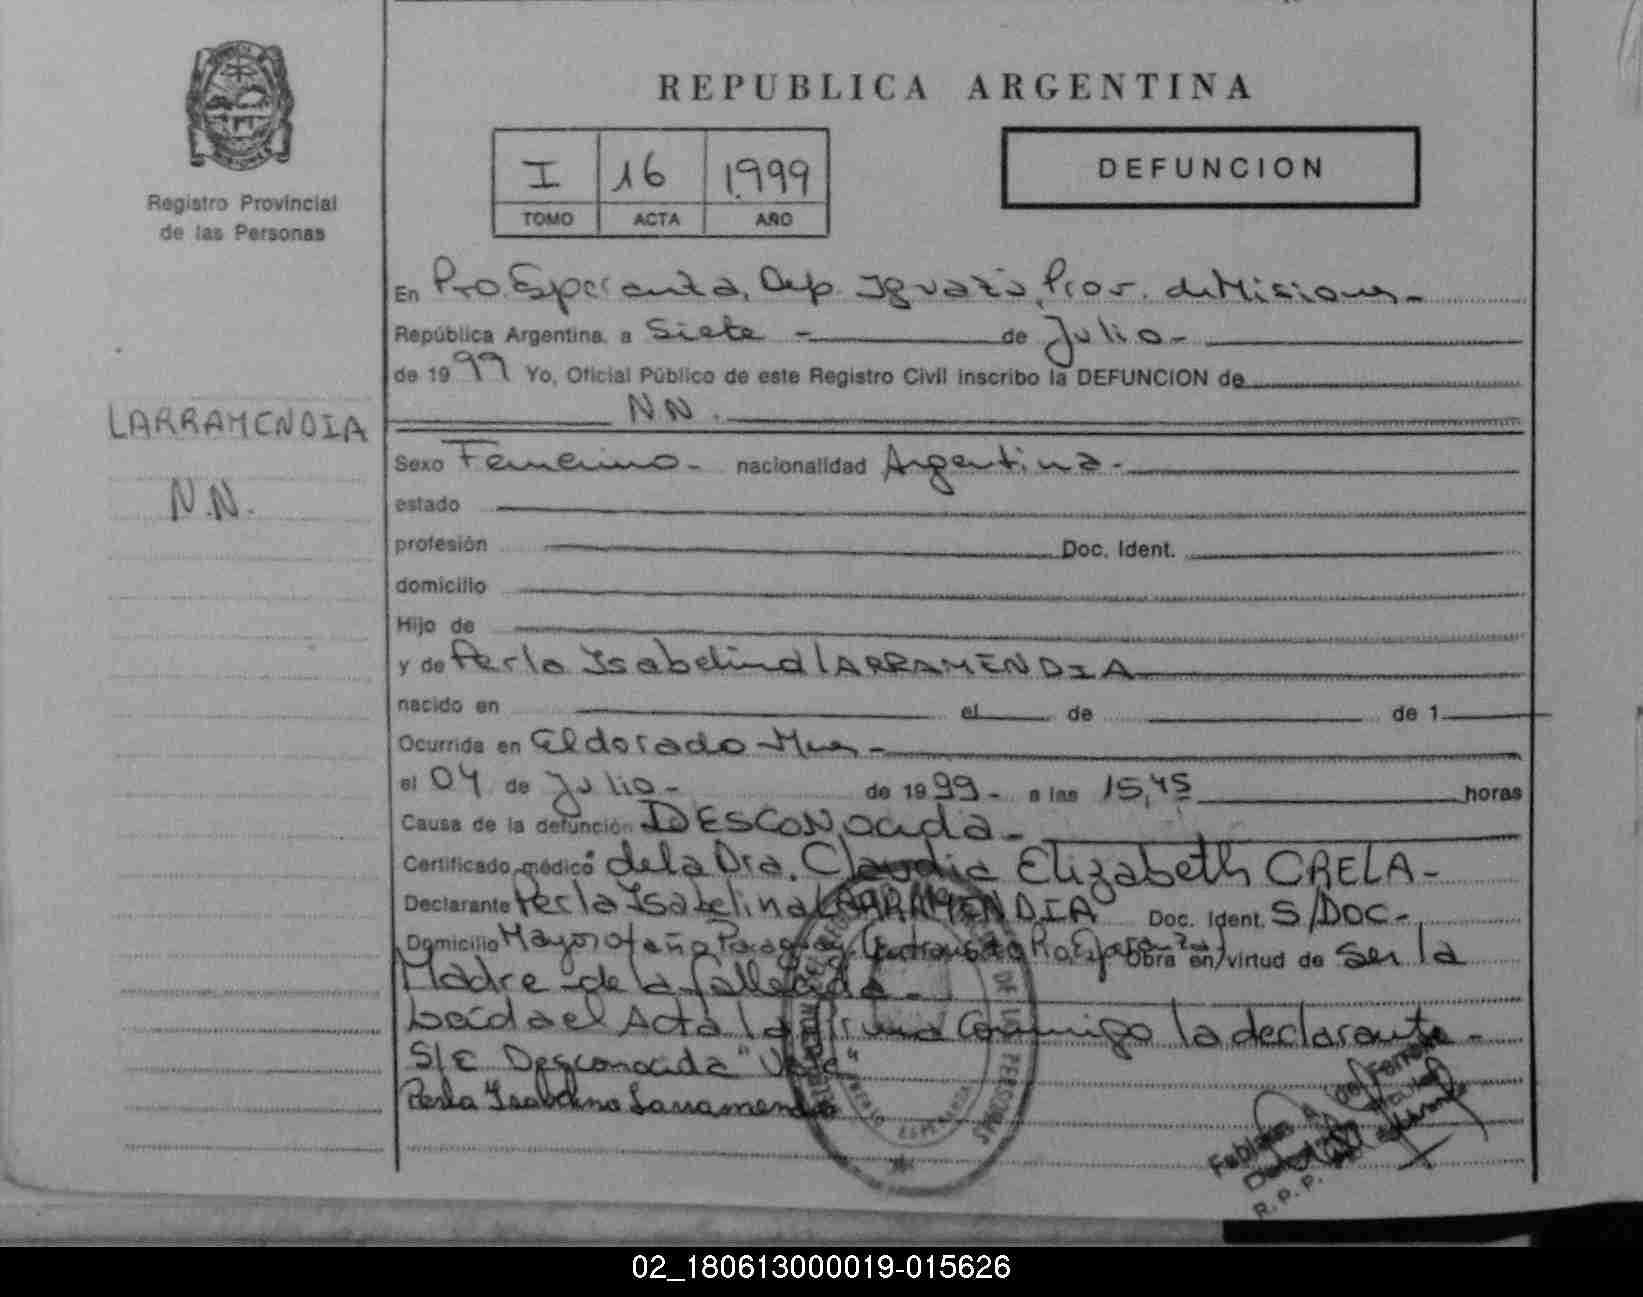 REPUBLICA ARGENTINA
I 16 1999
TOMO ACTA AÑO
DEFUNCION
Registro Provincial
de las Personas
LARRAMENDIA
N.N.
En Pto. Esperanza, Dep. Iguazú, Prov. de Misiones-
República Argentina, a Siete - de Julio-
de 1999 Yo, Oficial Público de este Registro Civil inscribo la DEFUNCION de
NN.
Sexo Femenino- nacionalidad Argentina-
estado
profesión Doc. Ident.
domicilio
Hijo de
y de Perla Isabelina LARRAMENDIA
nacido en el de de 1
Ocurrida en Eldorado-Mnes-
el 04 de Julio- de 1999- a las 15,45 horas
Causa de la defunción DESCONOCIDA-
Certificado médico de la Dra. Claudia Elizabeth CRELA-
Declarante Perla Isabelina LARRAMENDIA Doc. Ident. S/DOC-
Domicilio Mayor Otaño Paraguay Obra en virtud de ser la
Madre de la fallecida-
Leída el Acta la firma conmigo la declarante-
S/E Desconocida "Vale"
Perla Isabelina Larramendia
R.P.P.
02_180613000019-015626